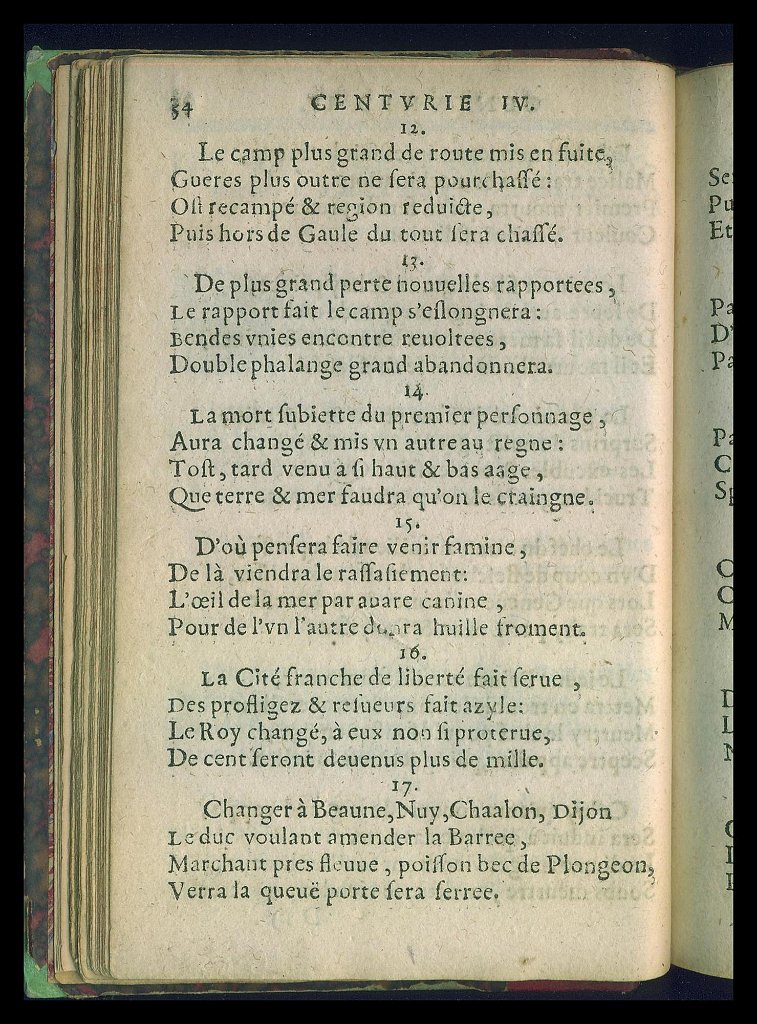 54 CENTVRIE IV.
12.
Le camp plus grand de route mis en fuite,
Gueres plus outre ne ſera pourchaſſé:
Oſt recampé & region reduicte,
Puis hors de Gaule du tout ſera chaſſé.
13.
De plus grand perte nouuelles rapportees,
Le rapport fait le camp s'eſlongnera:
Bendes vnies encontre reuoltees,
Double phalange grand abandonnera.
14.
La mort ſubiette du premier perſonnage,
Aura changé & mis vn autre au regne:
Toſt, tard venu a ſi haut & bas aage,
Que terre & mer faudra qu'on le craingne.
15.
D'où penſera faire venir famine,
De là viendra le raſſaſiement:
L'œil de la mer par auare canine,
Pour de l'vn l'autre donra huille froment.
16.
La Cité franche de liberté fait ſerue,
Des profligez & reſueurs fait azyle:
Le Roy changé, à eux non ſi proterue,
De cent ſeront deuenus plus de mille.
17.
Changer à Beaune, Nuy, Chaalon, Dijon
Le duc voulant amender la Barree,
Marchant pres fleuue, poiſſon bec de Plongeon,
Verra la queuë porte ſera ſerree.
Et
D'